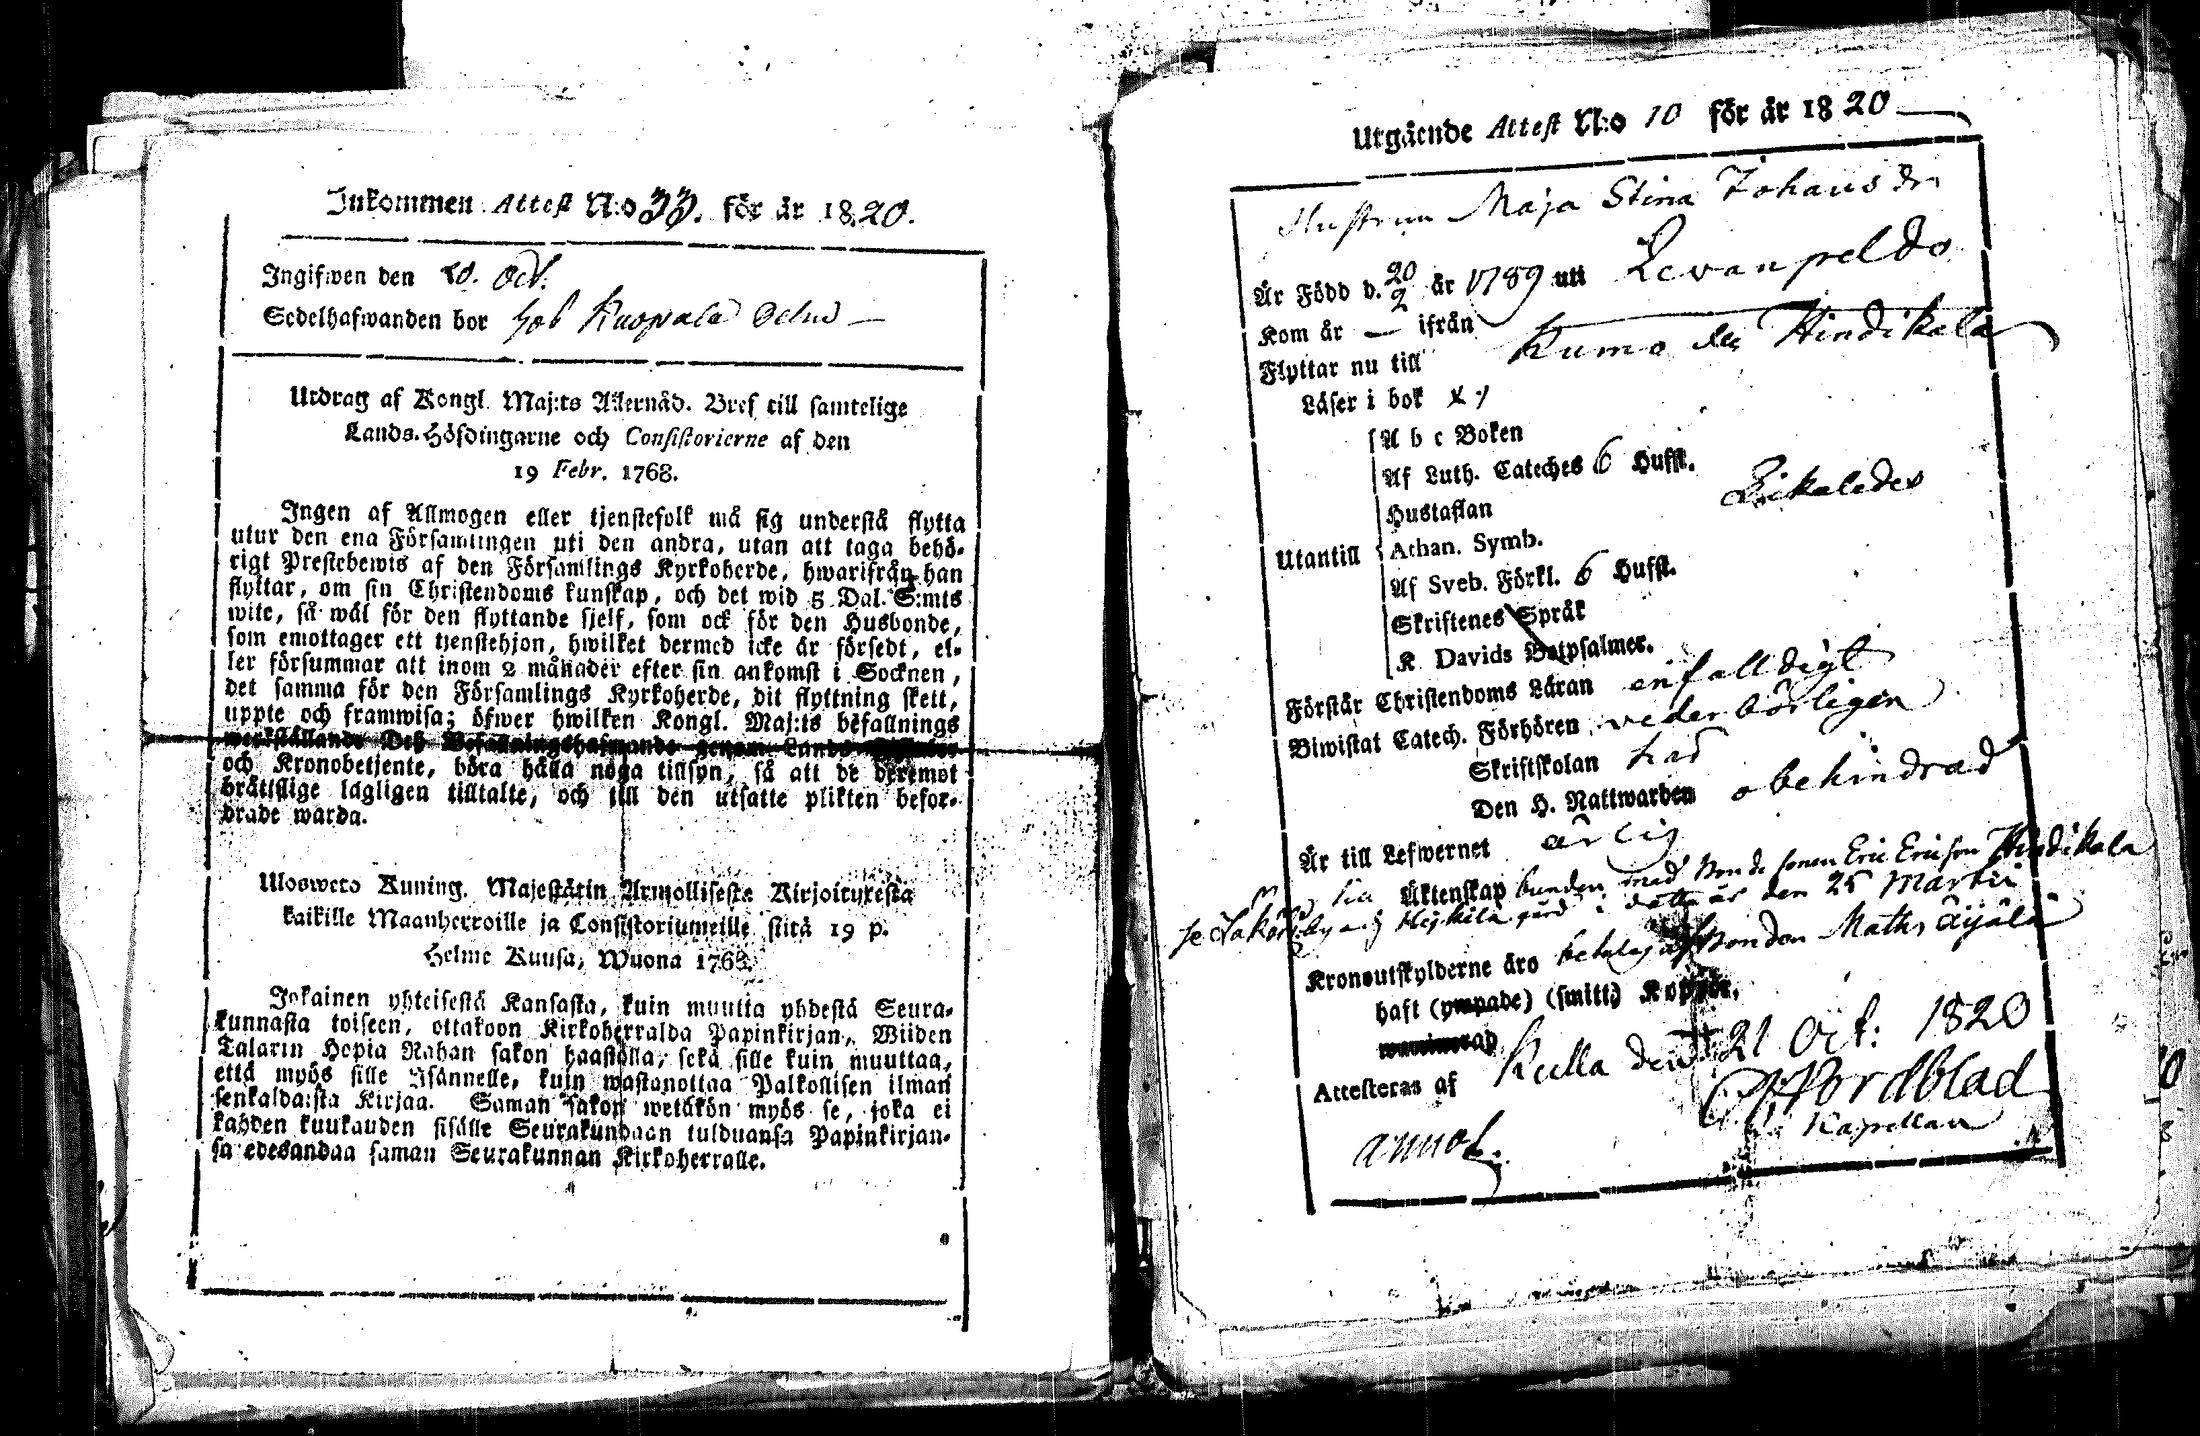 Inkommen Attest N:o 33. för år 1820.
Ingifwen den Oct.
Sedelhafwanden bor
Utdrag af Kongl. Maj:ts Allernåd. Bref till samtelige
Lands-Höfdingarne och Consistorierne af den
19 Febr. 1768.
Ingen af Allmogen eller tjenstefolk må sig understå flytta
utur den ena Församlingen uti den andra, utan att taga behö-
rigt Prestebewis af den Församlings Kyrkoherde, hwarifrån han
flyttar, om sin Christendoms kunskap, och det wid 5 Dal. S:mts
wite, så wäl för den flyttande sjelf, som ock för den Husbonde,
som emottager ett tjenstehjon, hwilket dermed icke är försedt, el-
ler försummar att inom 2 månader efter sin ankomst i Socknen,
det samma för den Församlings Kyrkoherde, dit flyttning skett,
uppte och framwisa; öfwer hwilken Kongl. Maj:ts befallnings
werkställande Deß Befallningshafwande genom Lands
och Kronobetjente, böra hålla noga tillsyn, så att de deremot
brätslige lagligen tilltalte, och till den utsatte plikten befor-
drade warda.
Ulosweto Kuning. Majestätin Armollisesta Kirjoituxesta
kaikille Maanherroille ja Consistoriumeille sitä 19 p.
Helme Kuusa, Wuona 1768.
Jokainen yhteisestä Kansasta, kuin muutta yhdestä Seura-
kunnasta toiseen, ottakoon Kirkoherralda Papinkirjan, Wiiden
Talarin Hopia Rahan sakon haastolla, sekä sille kuin muuttaa,
että myös sille Isännelle, kuin wastanottaa Palkollisen ilman
senkaldaista Kirjaa. Saman sakon wetäkön myös se, joka ei
kahden kuukauden sisälle Seurakundaan tulduansa Papinkirjan-
sa edesandaa saman Seurakunnan Kirkoherralle.
Utgående Attest N:o 10 för år 1820
Hustrun Maja Stina Johans dr
Är Född d. 20/2 år 1789 uti Levanpeldo
Kom år — ifrån
Flyttar nu till Kumo Hindikala
Läser i bok
A b c Boken
Af Luth. Cateches 6 Hufst.
Hustaflan
Utantill Athan. Symb.
Af Sveb. Förkl. 6 Hufst.
Skriftenes Språk
K Davids Botpsalmer.
Förstår Christendoms Läran enfalldigt
Biwistat Catech. Förhören vederbörligen
Skriftskolan har
Den H. Nattwarden obehindrad
Är till Lefwernet ärlig
Äktenskap bunden med Bonde sonen Eric Ericson Hindikala
gård i detta år den 25 Martii
Kronoutskylderne äro Bonden Maths Äijälä
haft (ympade) (smitt) Koppor.
Attesteras af Kulla den 21 Oct: 1820
Nordblad
Kapellan
annot.